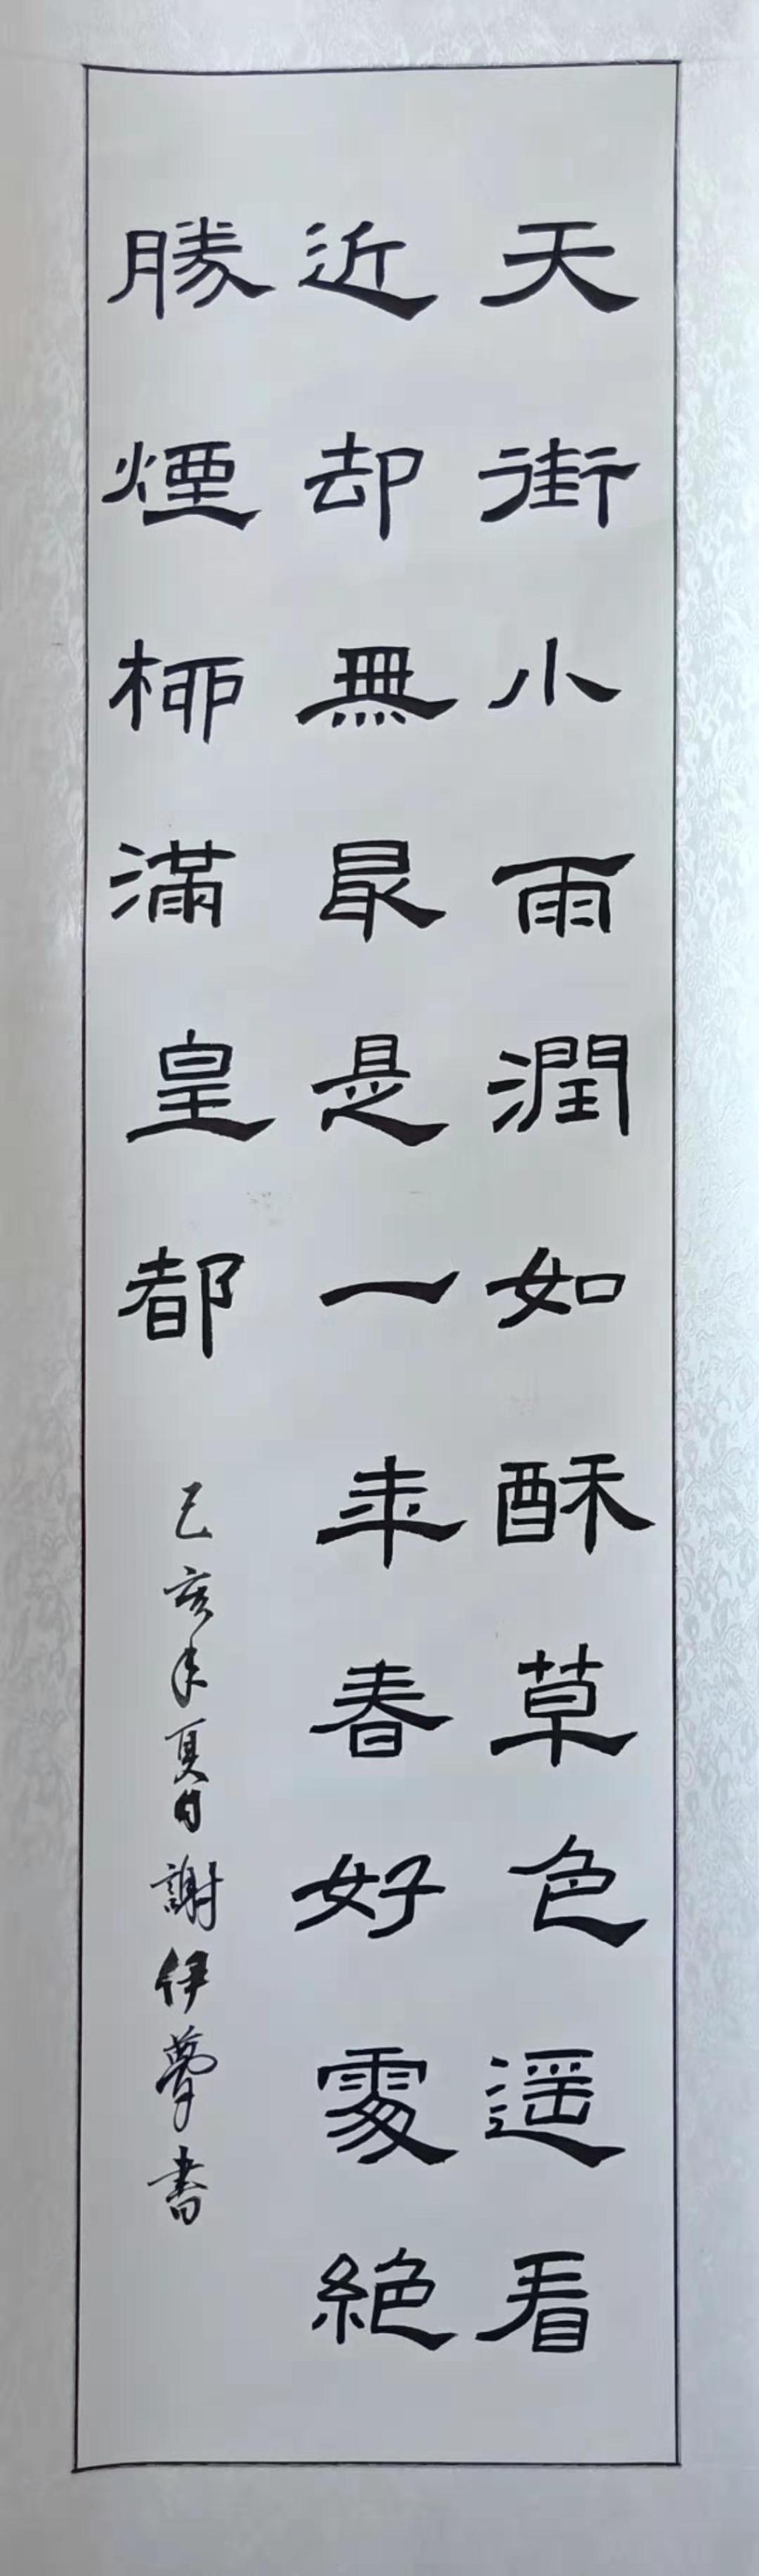 天街小雨潤如酥草色遥看
近却無最是一年春好處絕
勝煙柳滿皇都
己亥年夏日謝伊夢書